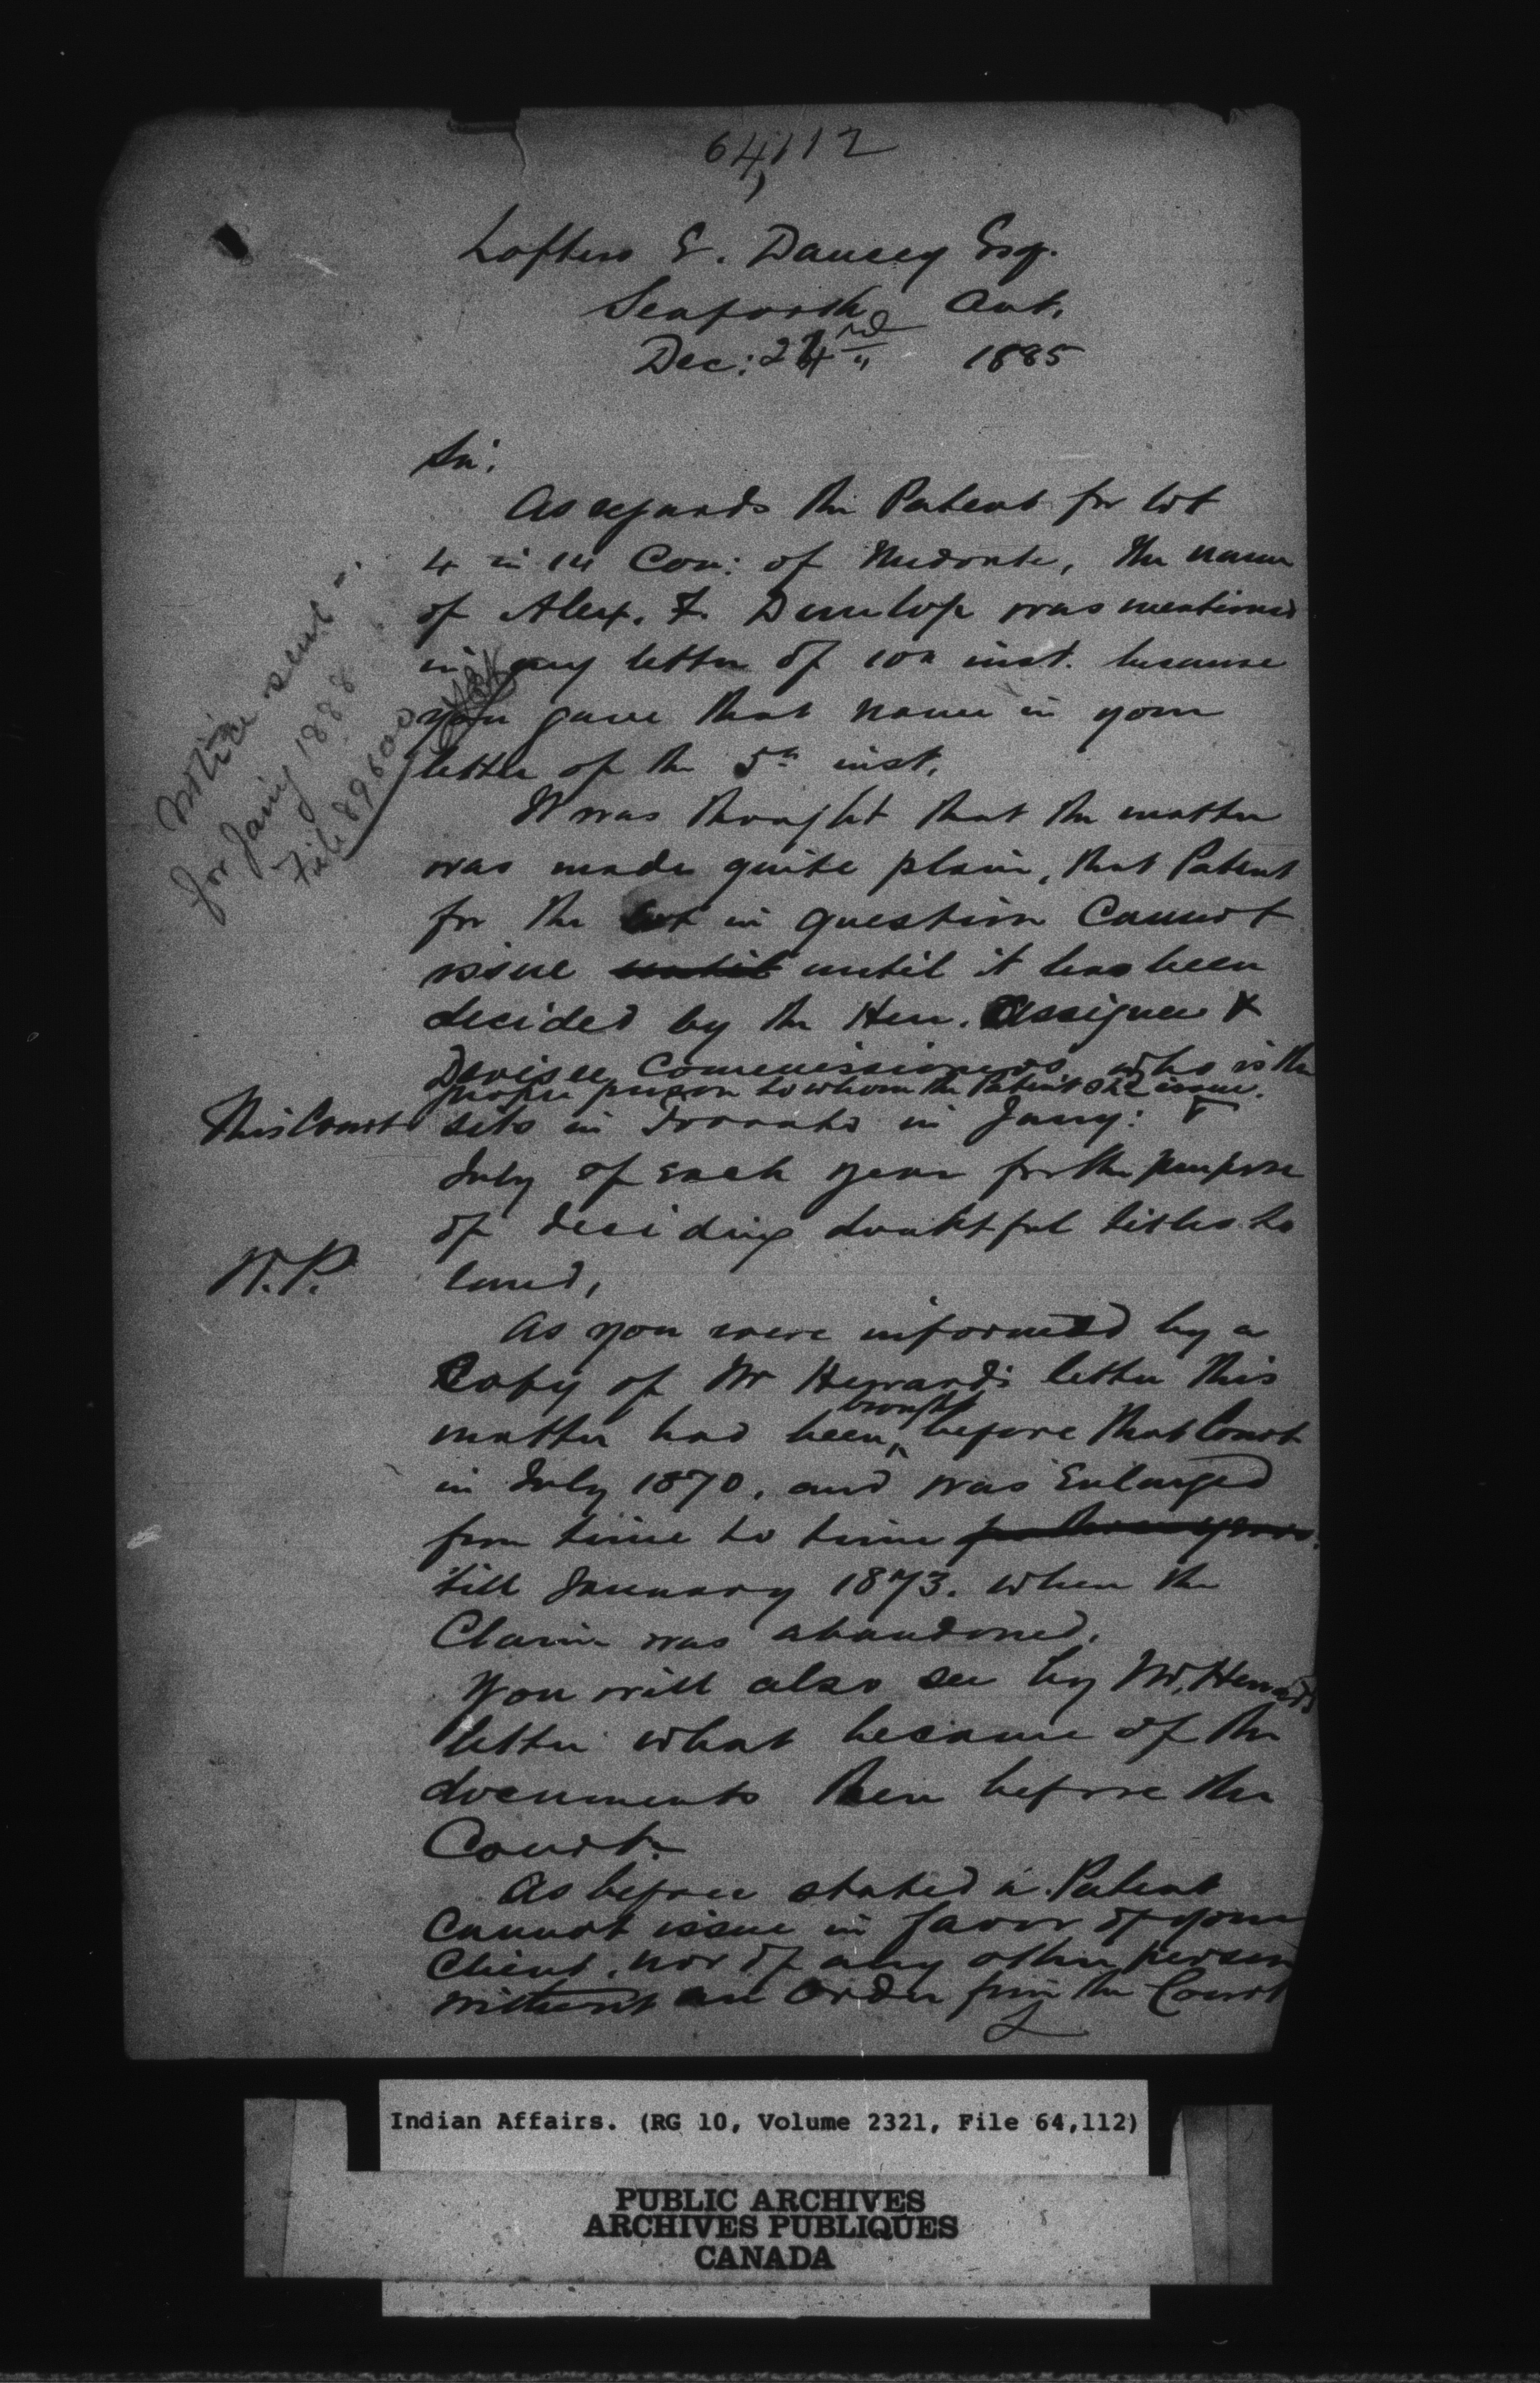 64,112
Loftus E. Dancey Esq.
Seaforth Ont.
Dec: 24 1885
Sir.
As regards the Patent for lot
4 in 14 Con: of Medonte, the name
of Alex. F. Dunlop was mentioned
in my letter of 10th inst. because
you gave that name in your
letter of the 5th inst.
Notice sent
for Jany 1888
File 89600
It was thought that the matter
was made quite plain, that Patent
for the Lot in question Cannot
issue until until it has been
decided by the Hen. Assignee &
Devisee Commissioners who is the
proper person to whom the Patent shd issue.
This Court sits in Toronto in Jany: &
July of each year for the purpose
of deciding doubtful titles to
land,
N.P.
As you were informed by a
Copy of Mr Heward's letter this
matter had been brought before that Court
in July 1870, and was Enlarged
from time to time for three years
till January 1873. when the
Claim was abandoned.
You will also see by Mr. Heward's
letter what became of the
documents then before the
Court.
As before stated a Patent
Cannot issue in favor of your
Client, nor of any other person
without an order from the Court
Indian Affairs. (RG 10, Volume 2321, File 64,112)
PUBLIC ARCHIVES
ARCHIVES PUBLIQUES
CANADA